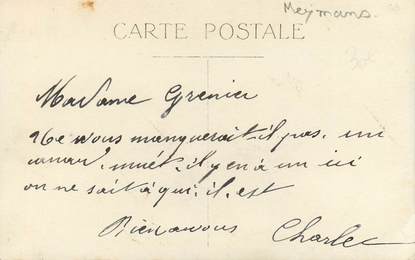 Meymans.
CARTE POSTALE
Madame Grenier
Ne vous manquerait-il pas. un
canard. muét. il y en à un ici
on ne sait à qui. il. est
Bien avous
Charles